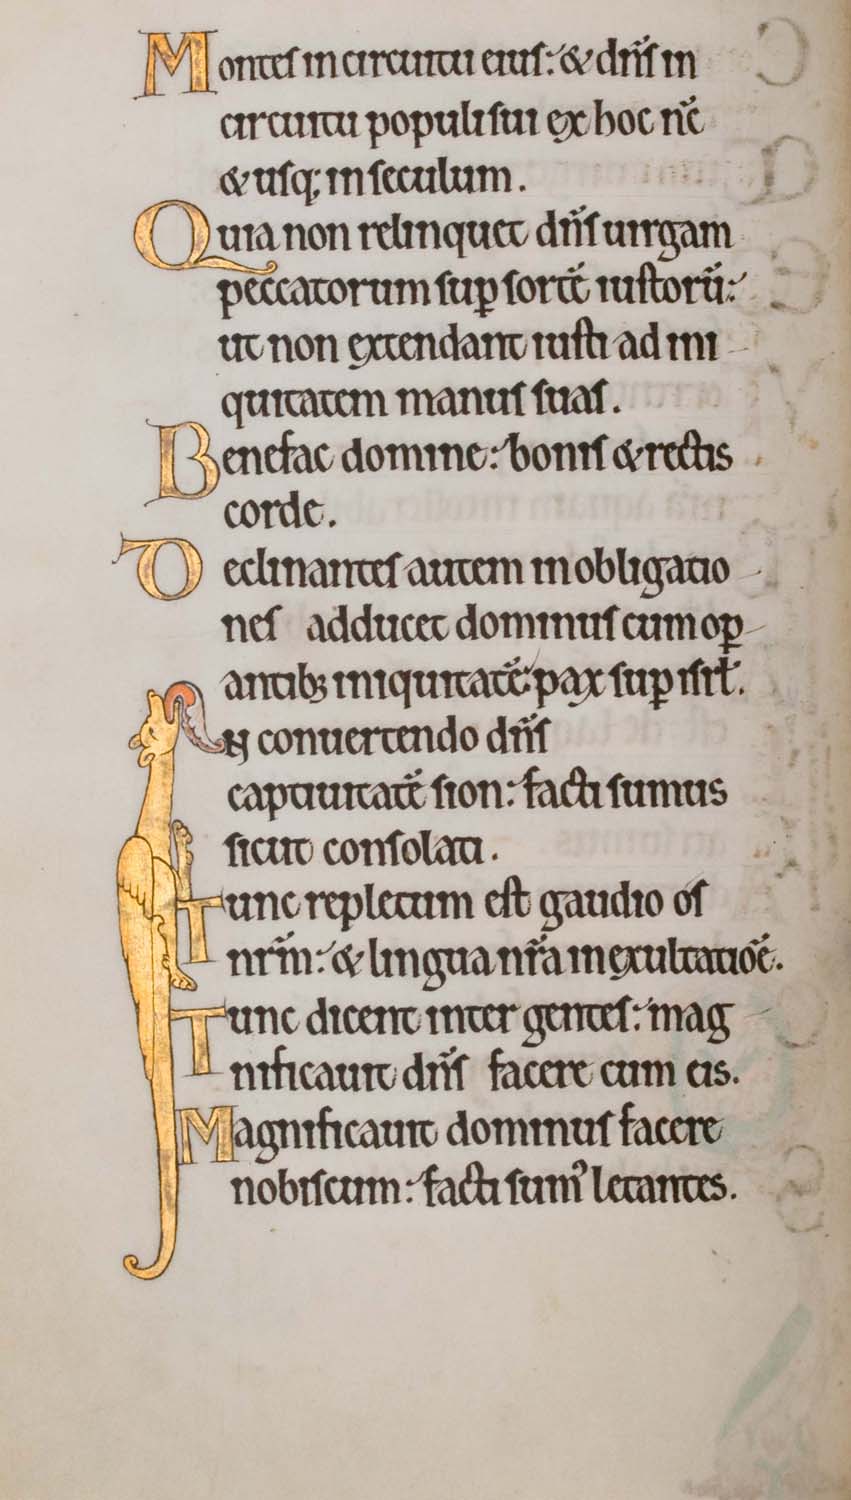 Montes in circuitu eius: & dn̄s in
circuitu populi sui ex hoc nc̄
& usq; in seculum.
Quia non relinquet dn̄s uirgam
peccatorum sup̱ sortē iustorū:
ut non extendant iusti ad ini
quitatem manus suas.
Benefac domine: bonis & rectis
corde.
Declinantes autem in obligatio
nes adducet dominus cum op̱
antibꝫ iniquitatē: pax sup̱ isrl̄.
IN conuertendo dn̄s
captiuitatē sion: facti sumus
sicut consolati.
Tunc repletum est gaudio os
nr̄m: & lingua nr̄a in exultatiōe.
Tunc dicent inter gentes: mag
nificauit dn̄s facere cum eis.
Magnificauit dominus facere
nobiscum: facti sumꝰ letantes.